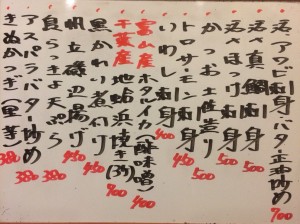 活アワビ刺身バタ正油炒め 700
活〆真鯛刺身 500
活〆ほっけ刺身 500
かつお土佐造り 500
トロサーモン刺身 450
いわし刺身 400
富山産ホタルイカ(酢味噌) 400
千葉産 地蛤浜焼き(3ケ) 700
黒かれい煮付け 450
帆立磯辺揚げ 450
島らっきょ天ぷら 380
アスパラバター炒め 380
きぬかつぎ(里芋) 380